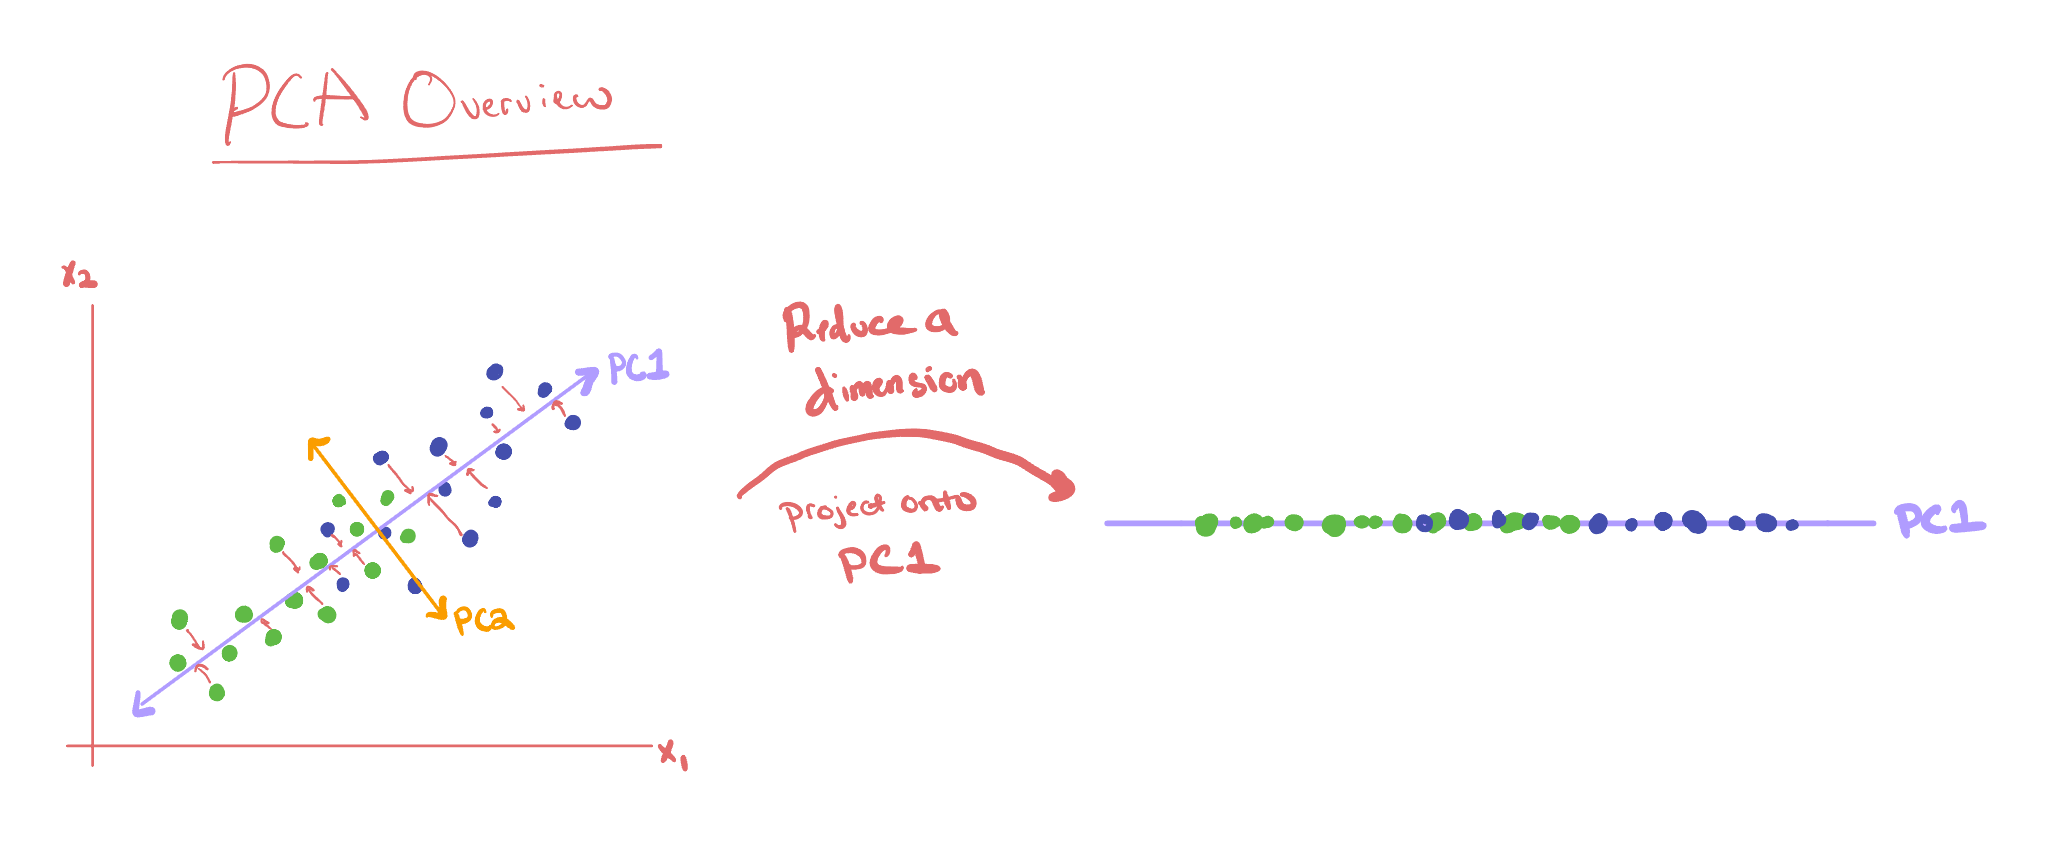 PCA Overview
x2
PC1
PC2
x1
Reduce a
dimension
project onto
PC1
PC1